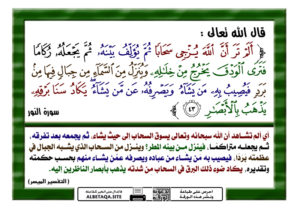 قال الله تعالى :
﴿ أَلَمْ تَرَ أَنَّ ٱللَّهَ يُزْجِى سَحَابًا ثُمَّ يُؤَلِّفُ بَيْنَهُۥ ثُمَّ يَجْعَلُهُۥ رُكَامًا
فَتَرَى ٱلْوَدْقَ يَخْرُجُ مِنْ خِلَٰلِهِۦ وَيُنَزِّلُ مِنَ ٱلسَّمَآءِ مِن جِبَالٍ فِيهَا مِنۢ
بَرَدٍ فَيُصِيبُ بِهِۦ مَن يَشَآءُ وَيَصْرِفُهُۥ عَن مَّن يَشَآءُ ۖ يَكَادُ سَنَا بَرْقِهِۦ
يَذْهَبُ بِٱلْأَبْصَٰرِ ٤٣ ﴾ سورة النور
ألم تشاهد أن الله سبحانه وتعالى يسوق السحاب إلى حيث يشاء، ثم يجمعه بعد تفرقه،
ثم يجعله متراكما، فينزل من بينه المطر؟ وينزل من السحاب الذي يشبه الجبال في
عظمته بردا، فيصيب به من يشاء من عباده ويصرفه عمن يشاء منهم بحسب حكمته
وتقديره، يكاد ضوء ذلك البرق في السحاب من شدته يذهب بأبصار الناظرين إليه.
( التفسير الميسر )
ALBETAQA.SITE